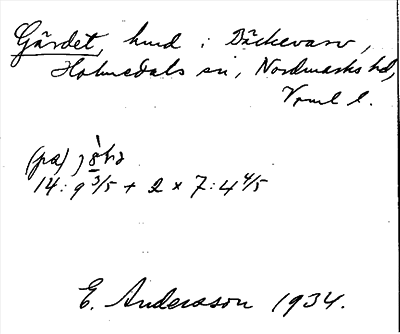 Gärdet, hmd i Bäckevarv,
Holmedals sn, Nordmarks hd,
Vrml l.
(på)
14: 9 3/5 + 2 x 7: 4 4/5
E. Andersson 1934.